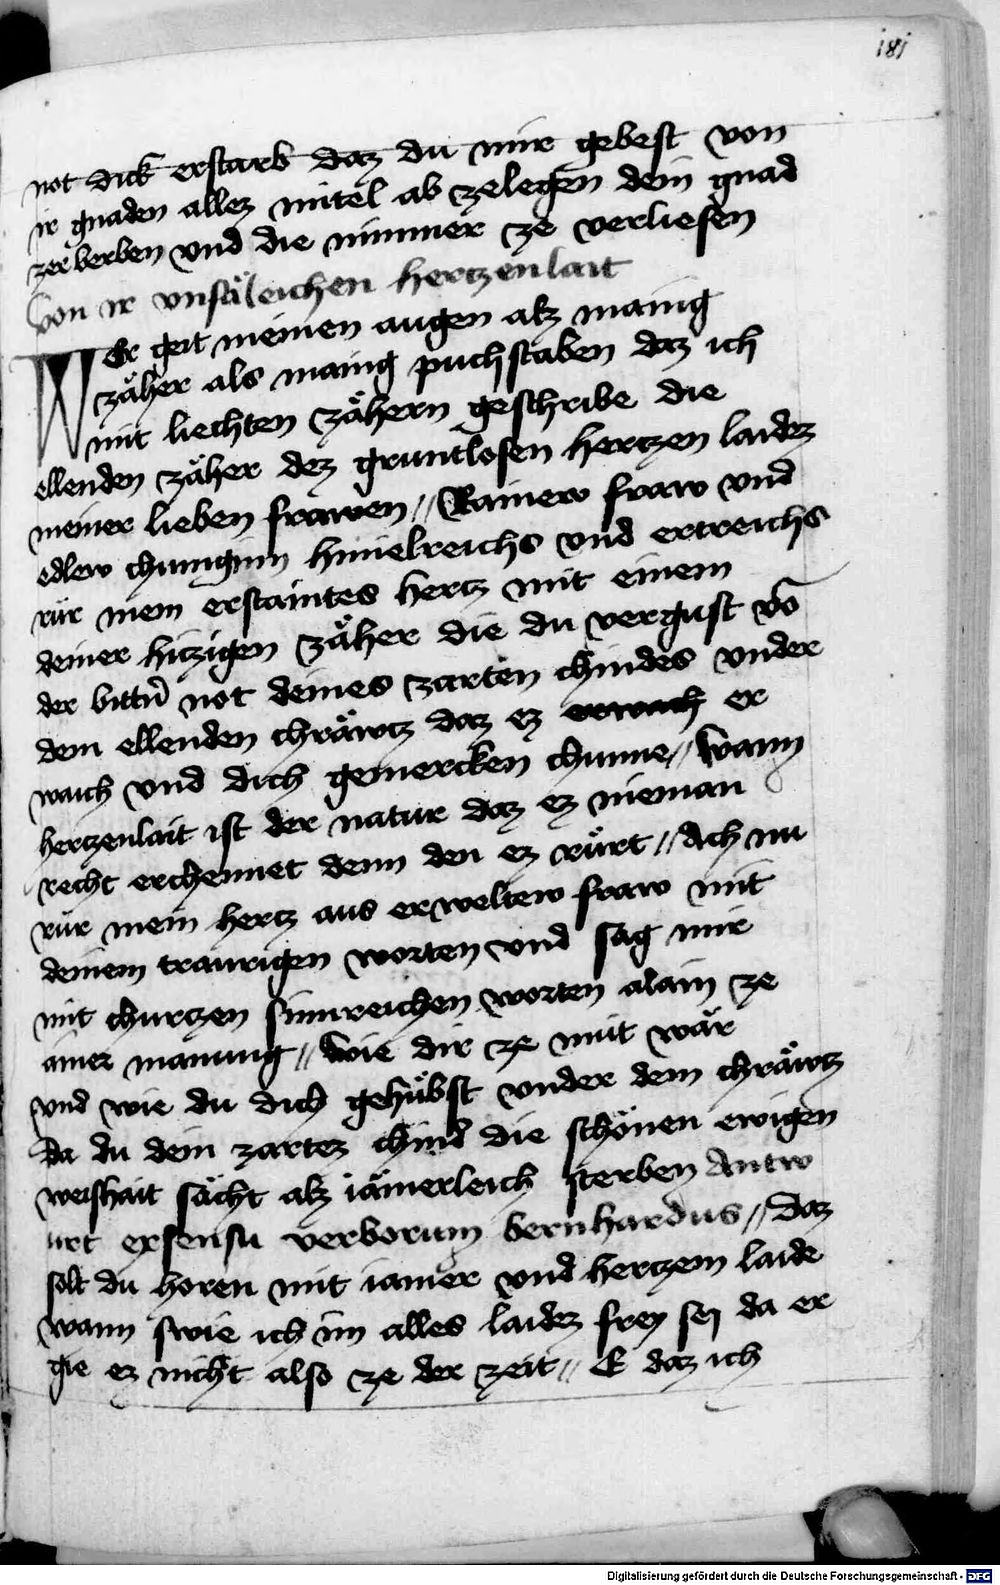 181
not dick erstarb daz du mir gebest von
ir gnaden allez mitel ab zelegen dein gnad
zerberben vnd die nimmer ze verliesen
von ir vnsäleichen hertzenlait
Er geit meinen augen alz manig
zäher als manig puchstaben daz ich
mit liechten zähern geschribe die
ellenden zäher dez gruntlosen hertzen laidez
meiner lieben frawen // Rainew fraw vnd
edlew chunginn himelreichs vnd ertreichs
rür mein erstaintes hertz mit einem
deiner hitzigen zäher die du vergust vō
der bittn̄ not deines zarten chindes vnder
dem ellenden chräwtz daz ez er
waich vnd dich gemercken chunne // wann
hertzenlait ist der natur daz ez nieman
recht erchennet denn den ez rürt // Ach nu
rür mein hertz aus erweltew fraw mit
deinem traurigen worten vnd sag mir
mit churtzen sinnreichen worten alain ze
ainer manung // wie dir ze mut wär
vnd wie du dich gehübst vnder dem chräwtz
da du dein zartez chind die schönen ewigen
weishait sächt alz iämerleich sterben Antw
urt ex sensu verborum bernhardus // Daz
solt du horen mit iamer vnd hertzem laide
wann swie ich im alles laidez frey sey da er
gie ez nicht also ze der zeit // E daz ich
Digitalisierung gefördert durch die Deutsche Forschungsgemeinschaft - DFG